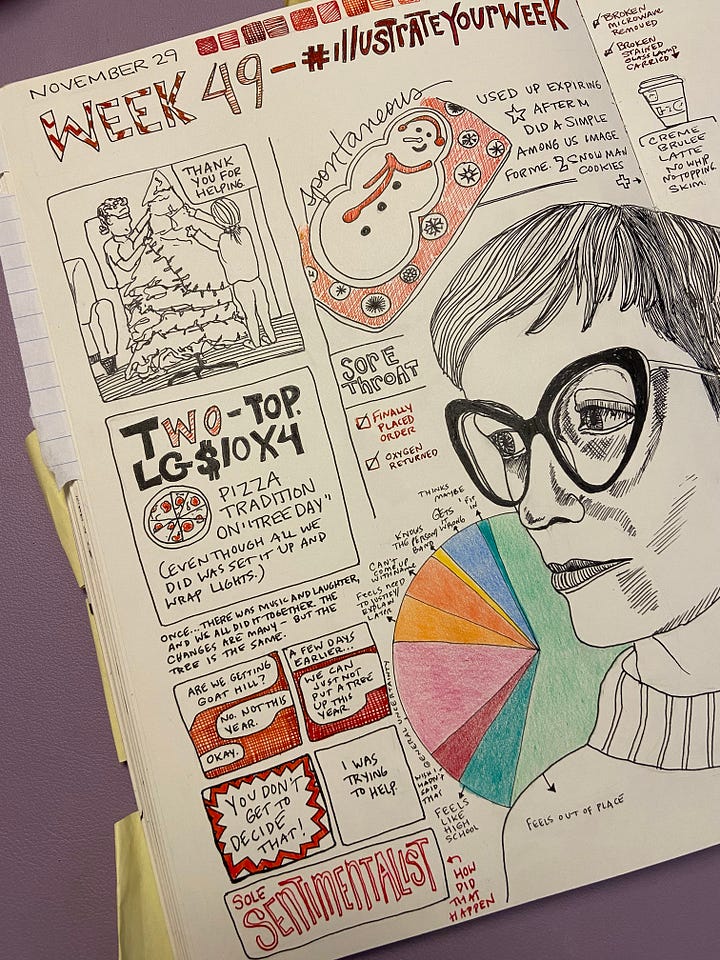 NOVEMBER 29
WEEK 49 - #ILLUSTRATEYOURWEEK
THANK
YOU FOR
HELPING.
spontaneous
USED UP EXPIRING
AFTER M
DID A SIMPLE
AMONG US IMAGE
FOR ME. 2 SNOWMAN
COOKIES
BROKEN
MICROWAVE
REMOVED
BROKEN
STAINED
GLASS LAMP
CARRIED
CREME
BRULEE
LATTE
NO WHIP
NO TOPPING
SKIM.
SORE
THROAT
FINALLY
PLACED
ORDER
OXYGEN
RETURNED
TWO-TOP.
LG $10 X 4
PIZZA
TRADITION
ON "TREE DAY"
(EVEN THOUGH ALL WE
DID WAS SET IT UP AND
WRAP LIGHTS.)
ONCE... THERE WAS MUSIC AND LAUGHTER,
AND WE ALL DID IT TOGETHER. THE
CHANGES ARE MANY - BUT THE
TREE IS THE SAME.
ARE WE GETTING
GOAT HILL?
NO. NOT THIS
YEAR.
OKAY.
A FEW DAYS
EARLIER...
WE CAN
JUST NOT
PUT A TREE
UP THIS
YEAR.
YOU DON'T
GET TO
DECIDE
THAT!
I WAS
TRYING
TO HELP.
SOLE
SENTIMENTALIST
HOW
DID
THAT
HAPPEN
THINKS
MAYBE
GETS 'FIT
IN'
WRONG
KNOWS
THE PERSON/
BAND
CAN'T
COME UP
WITH NAME
FEELS NEED
TO JUSTIFY/
EXPLAIN
LATER
GENERAL UNCERTAINTY
WISH I
HADN'T
SAID
THAT
FEELS
LIKE
HIGH
SCHOOL
FEELS OUT OF PLACE